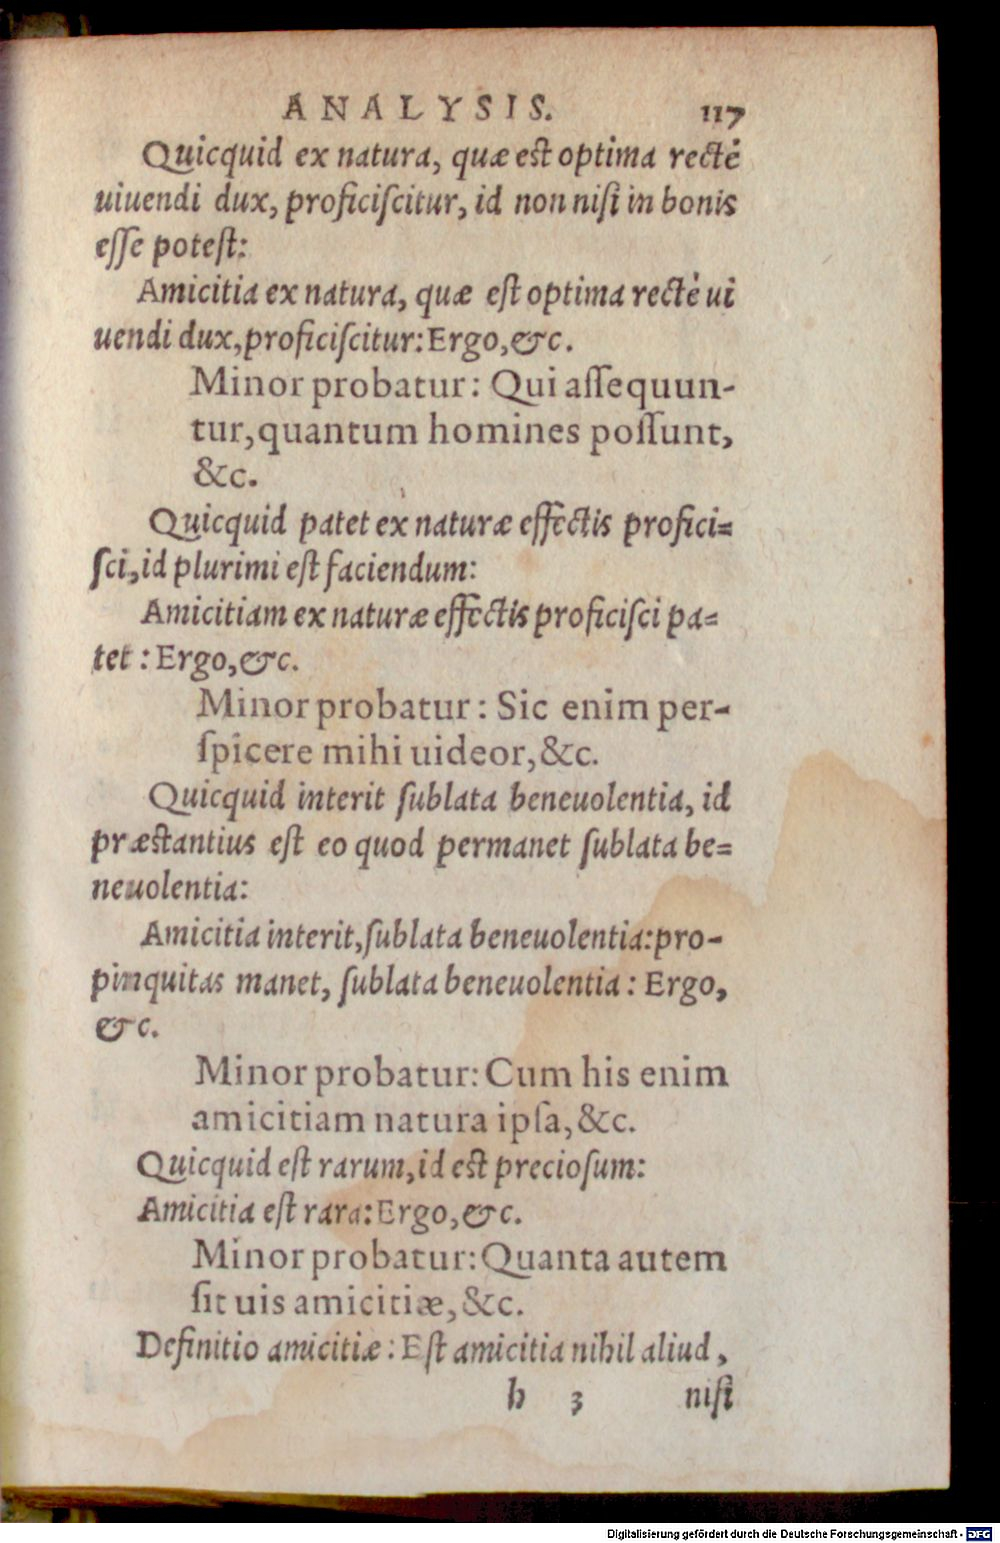 ANALYSIS. 117
Quicquid ex natura, quæ est optima rectè
uiuendi dux, proficiſcitur, id non niſi in bonis
eſſe poteſt:
Amicitia ex natura, quæ eſt optima rectè ui
uendi dux, proficiſcitur: Ergo, &c.
Minor probatur: Qui aſſequun-
tur, quantum homines poſſunt,
&c.
Quicquid patet ex naturæ effectis profici=
ſci, id plurimi eſt faciendum:
Amicitiam ex naturæ effectis proficiſci pa=
tet: Ergo, &c.
Minor probatur: Sic enim per-
ſpicere mihi uideor, &c.
Quicquid interit ſublata beneuolentia, id
præstantius eſt eo quod permanet ſublata be=
neuolentia:
Amicitia interit, ſublata beneuolentia: pro-
pinquitas manet, ſublata beneuolentia: Ergo,
&c.
Minor probatur: Cum his enim
amicitiam natura ipſa, &c.
Quicquid eſt rarum, id est precioſum:
Amicitia eſt rara: Ergo, &c.
Minor probatur: Quanta autem
ſit uis amicitiæ, &c.
Definitio amicitiæ: Eſt amicitia nihil aliud,
h 3 niſi
Digitalisierung gefördert durch die Deutsche Forschungsgemeinschaft - DFG